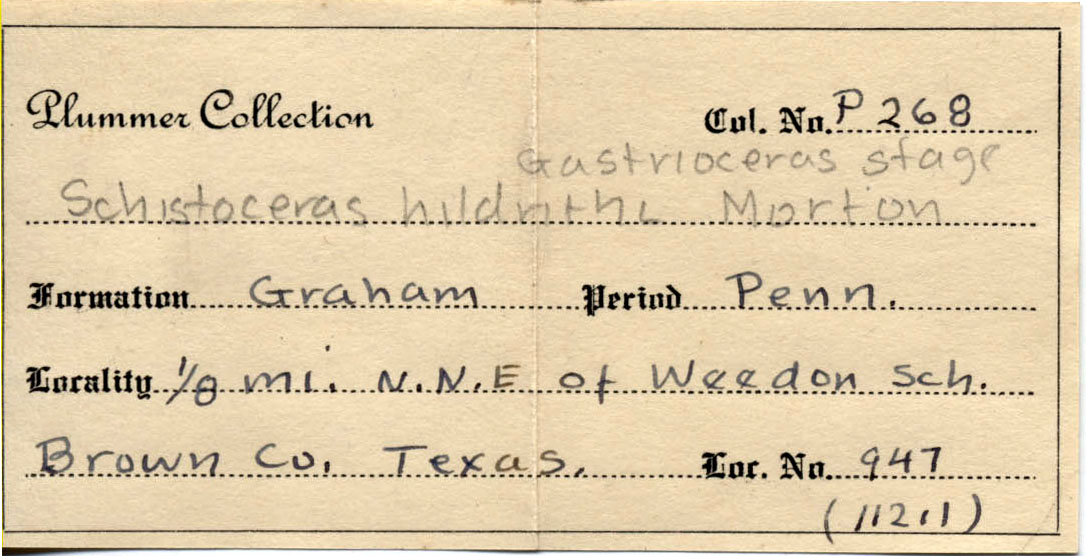 Plummer Collection Col. No. P 268
Gastrioceras stage
Schistoceras hildrithi Morton
Formation Graham Period Penn.
Locality 1/8 mi. N.N.E of Weedon Sch.
Brown Co. Texas. Loc. No. 947
(11211)